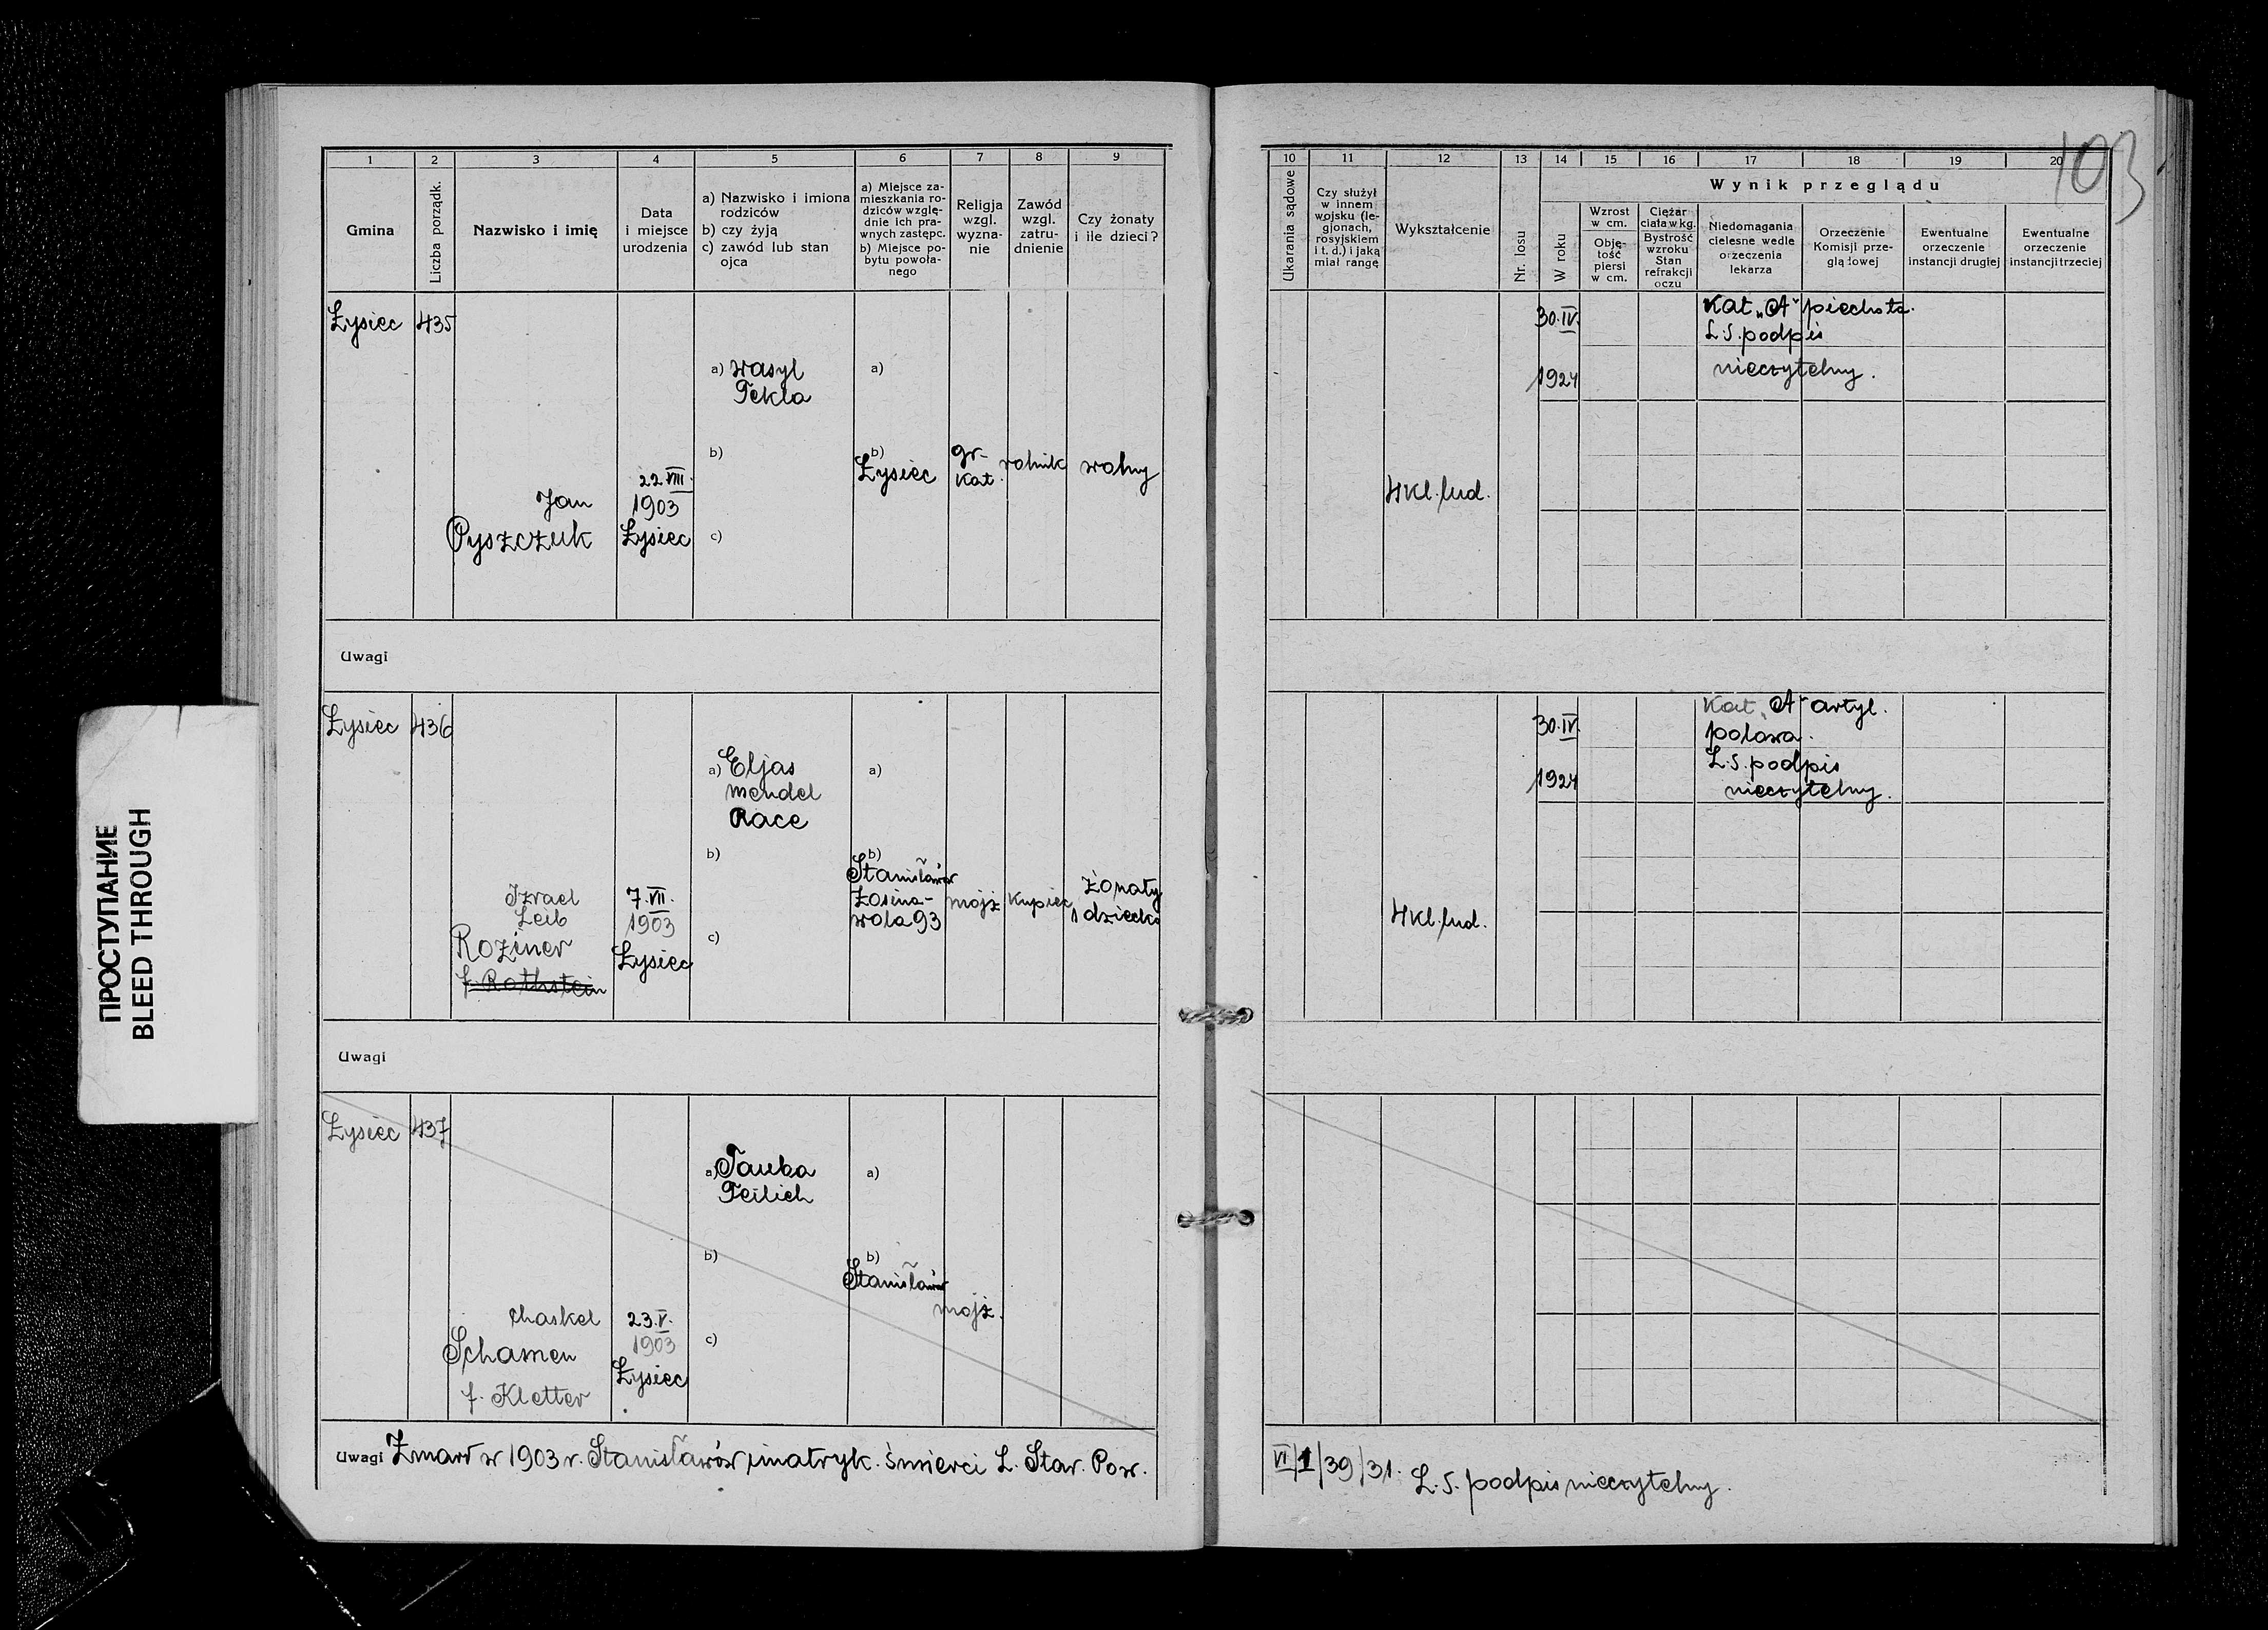 103
1 2 3 4 5 6 7 8 9
Gmina
Liczba porządk.
Nazwisko i imię
Data
i miejsce
urodzenia
a) Nazwisko i imiona
rodziców
b) czy żyją
c) zawód lub stan
ojca
a) Miejsce za-
mieszkania ro-
dziców wzglę-
dnie ich pra-
wnych zastępc.
b) Miejsce po-
bytu powoła-
nego
Religja
wzgl.
wyzna-
nie
Zawód
wzgl.
zatru-
dnienie
Czy żonaty
i ile dzieci?
10 11 12 13 14 15 16 17 18 19 20
Ukarania sądowe
Czy służył
w innem
wojsku (le-
gjonach,
rosyjskiem
i t. d.) i jaką
miał rangę
Wykształcenie
Nr. losu
Wynik przeglądu
W roku
Wzrost
w cm.
Obję-
tość
piersi
w cm.
Ciężar
ciała w kg.
Bystrość
wzroku
Stan
refrakcji
oczu
Niedomagania
cielesne wedle
orzeczenia
lekarza
Orzeczenie
Komisji prze-
glądowej
Ewentualne
orzeczenie
instancji drugiej
Ewentualne
orzeczenie
instancji trzeciej
Łysiec 435
Jan
Pyszczuk
22.VIII.
1903
Łysiec
a) Wasyl
Tekla
b)
c)
a)
b)
Łysiec
gr-
kat.
rolnik
wolny
4 kl. lud.
30.IV.
1924
Kat „A" piechota.
L.S. podpis
nieczytelny.
Uwagi
Łysiec 436
Izrael
Leib
Roziner
f. Rothstein
7.VII.
1903
Łysiec
a) Eljas
Mendel
Race
b)
c)
a)
b)
Stanisławów
Zosina-
wola 93
mojż
kupiec
żonaty
1 dziecko
4 kl. lud.
30.IV.
1924
Kat „A" artyl.
polowa.
L.S. podpis
nieczytelny.
Uwagi
Łysiec 437
Chaskel
Schamen
f. Kletter
23.V.
1903
Łysiec
a) Tauba
Feilich
b)
c)
a)
b)
Stanisławów
mojż.
Uwagi Zmarł w 1903 r. Stanisławów, matryk. śmierci L. Star. Pow.
VI/1/39/31. L.S. podpis nieczytelny.
ПРОСТУПАНИЕ
BLEED THROUGH